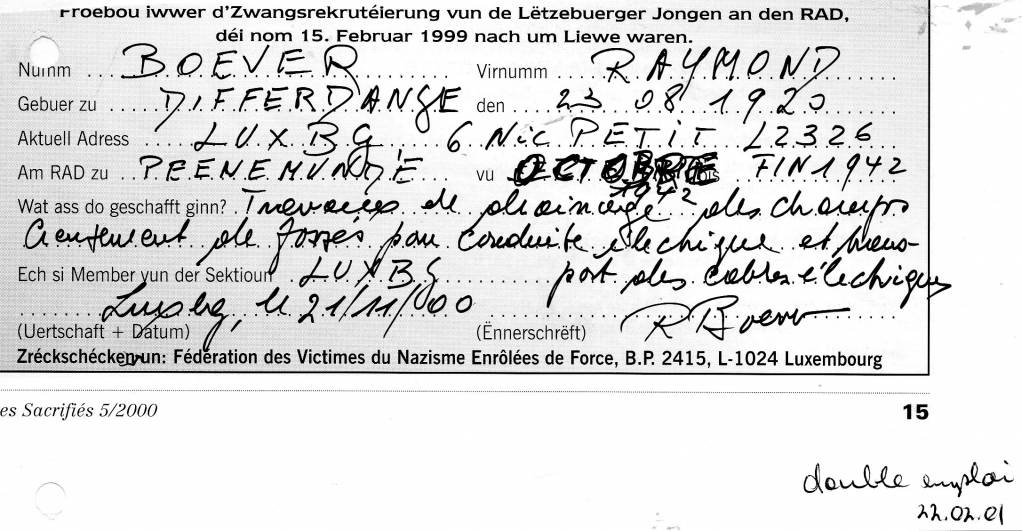 Froebou iwwer d'Zwangsrekrutéierung vun de Lëtzebuerger Jongen an den RAD,
déi nom 15. Februar 1999 nach um Liewe waren.
Numm BOEVER Virnumm RAYMOND
Gebuer zu DIFFERDANGE den 23 08 1920
Aktuell Adress LUXBG, 6 Nic PETIT L2326
Am RAD zu PEENEMUNDE vu OCTOBRE 1942 FIN 1942
Wat ass do geschafft ginn? Travaux de drainage des champs
Creusement de fossés pour conduite électrique et trans-
Ech si Member vun der Sektioun LUXBG port des cables électriques
Luxbg, le 21/11/00
(Uertschaft + Datum) (Ënnerschrëft) R Boever
Zréckschécken un: Fédération des Victimes du Nazisme Enrôlées de Force, B.P. 2415, L-1024 Luxembourg
es Sacrifiés 5/2000 15
double emploi
22.02.01